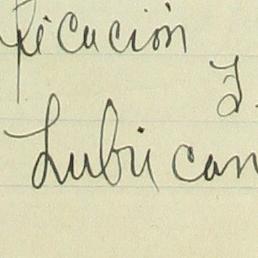 ficación
I.
Lubrican